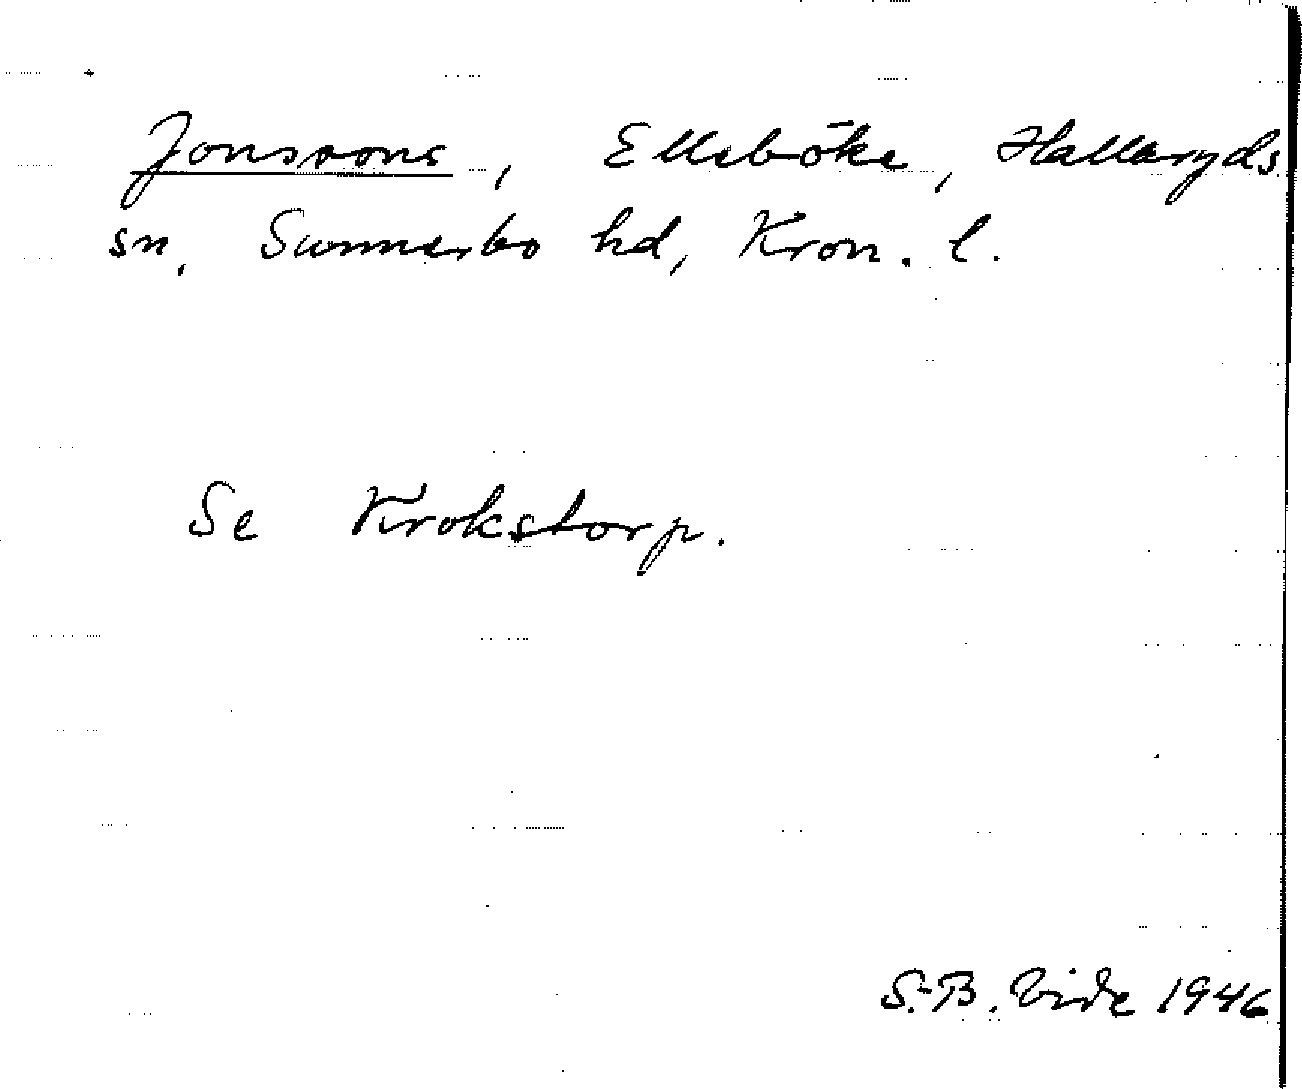 Jonssons, Ellsböke, Hallaryds
sn, Sunnerbo hd, Kron. l.
Se Krokstorp.
S.-B. Vide 1946